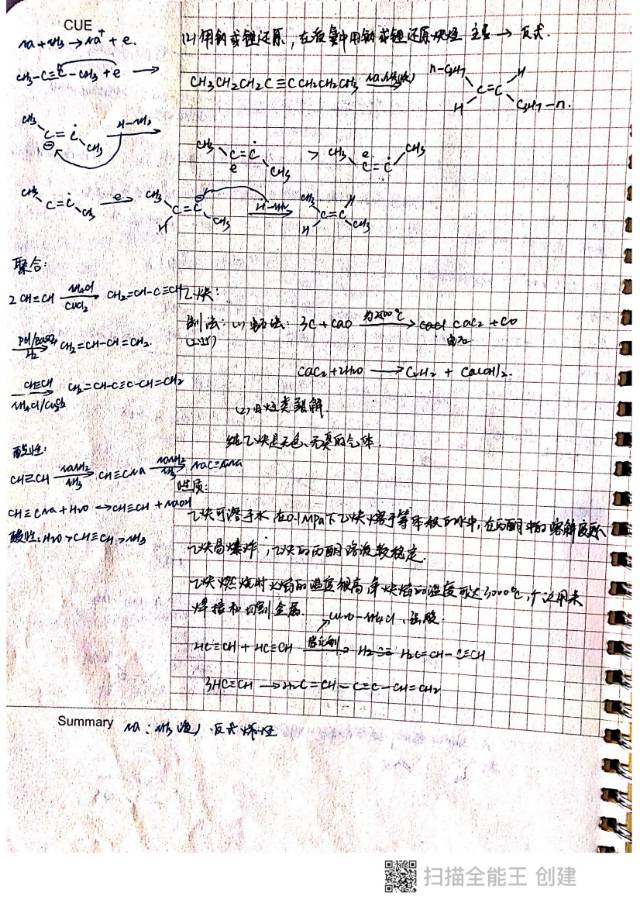 CUE
Na + NH₃ → Na⁺ + e.
CH₃-C≡C-CH₃ + e →
H-NH₂
CH₃ C=Ċ CH₃
CH₃ C=Ċ CH₃ e→ CH₃ H C=C CH₃ H-NH₂ → CH₃ H C=C H CH₃
聚合:
2 CH≡CH NH₄Cl CuCl₂ → CH₂=CH-C≡CH
Pd/BaSO₄ H₂ → CH₂=CH-CH=CH₂
CH≡CH → CH₂=CH-C≡C-CH=CH₂
酸性:
CH≡CH NaNH₂ NH₃ → CH≡CNa NaNH₂ NH₃ → NaC≡CNa
CH≡CNa + H₂O → CH≡CH + NaOH
酸性: H₂O > CH≡CH > NH₃
(2) 用钠或锂还原, 在液氨中用钠或锂还原炔烃 主要 → 反式.
CH₃CH₂CH₂C≡CCH₂CH₂CH₃ Na, NH₃(液) → n-C₃H₇ H C=C H C₃H₇-n.
CH₃ C=Ċ CH₃ > CH₃ C=Ċ CH₃
乙炔:
制法: (1) 电石法: 3C + CaO 约2500℃ → CaC₂ + CO
(工业) 电石
CaC₂ + 2H₂O → C₂H₂ + Ca(OH)₂.
(2) 烃类裂解
纯乙炔是无色、无臭的气体.
性质:
乙炔可溶于水, 在0.1MPa下乙炔溶于等体积的水中, 在丙酮中的溶解度大
乙炔易爆炸; 乙炔的丙酮溶液较稳定.
乙炔燃烧时火焰的温度很高, 氧炔焰的温度可达3000℃, 广泛用来
焊接和切割金属.
NH₄Cl, 盐酸
HC≡CH + HC≡CH 催化剂 → H₂C=CH-C≡CH
3HC≡CH → H₂C=CH-C≡C-CH=CH₂
Summary Na, NH₃(液) 反式烯烃
扫描全能王 创建